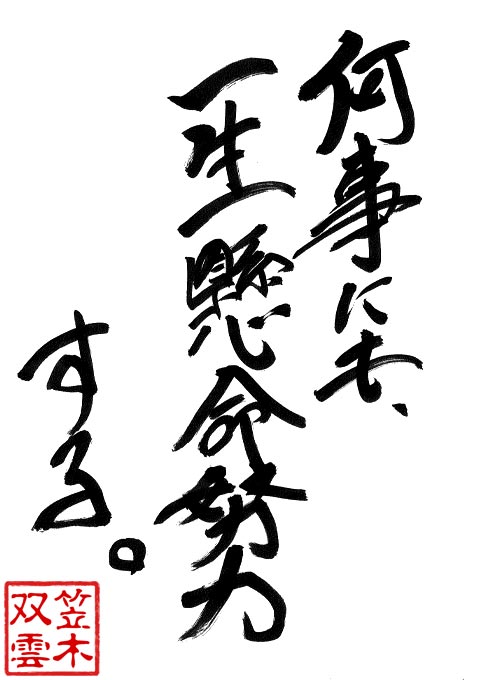 何事にも、
一生懸命努力
する。
笠木
双雲